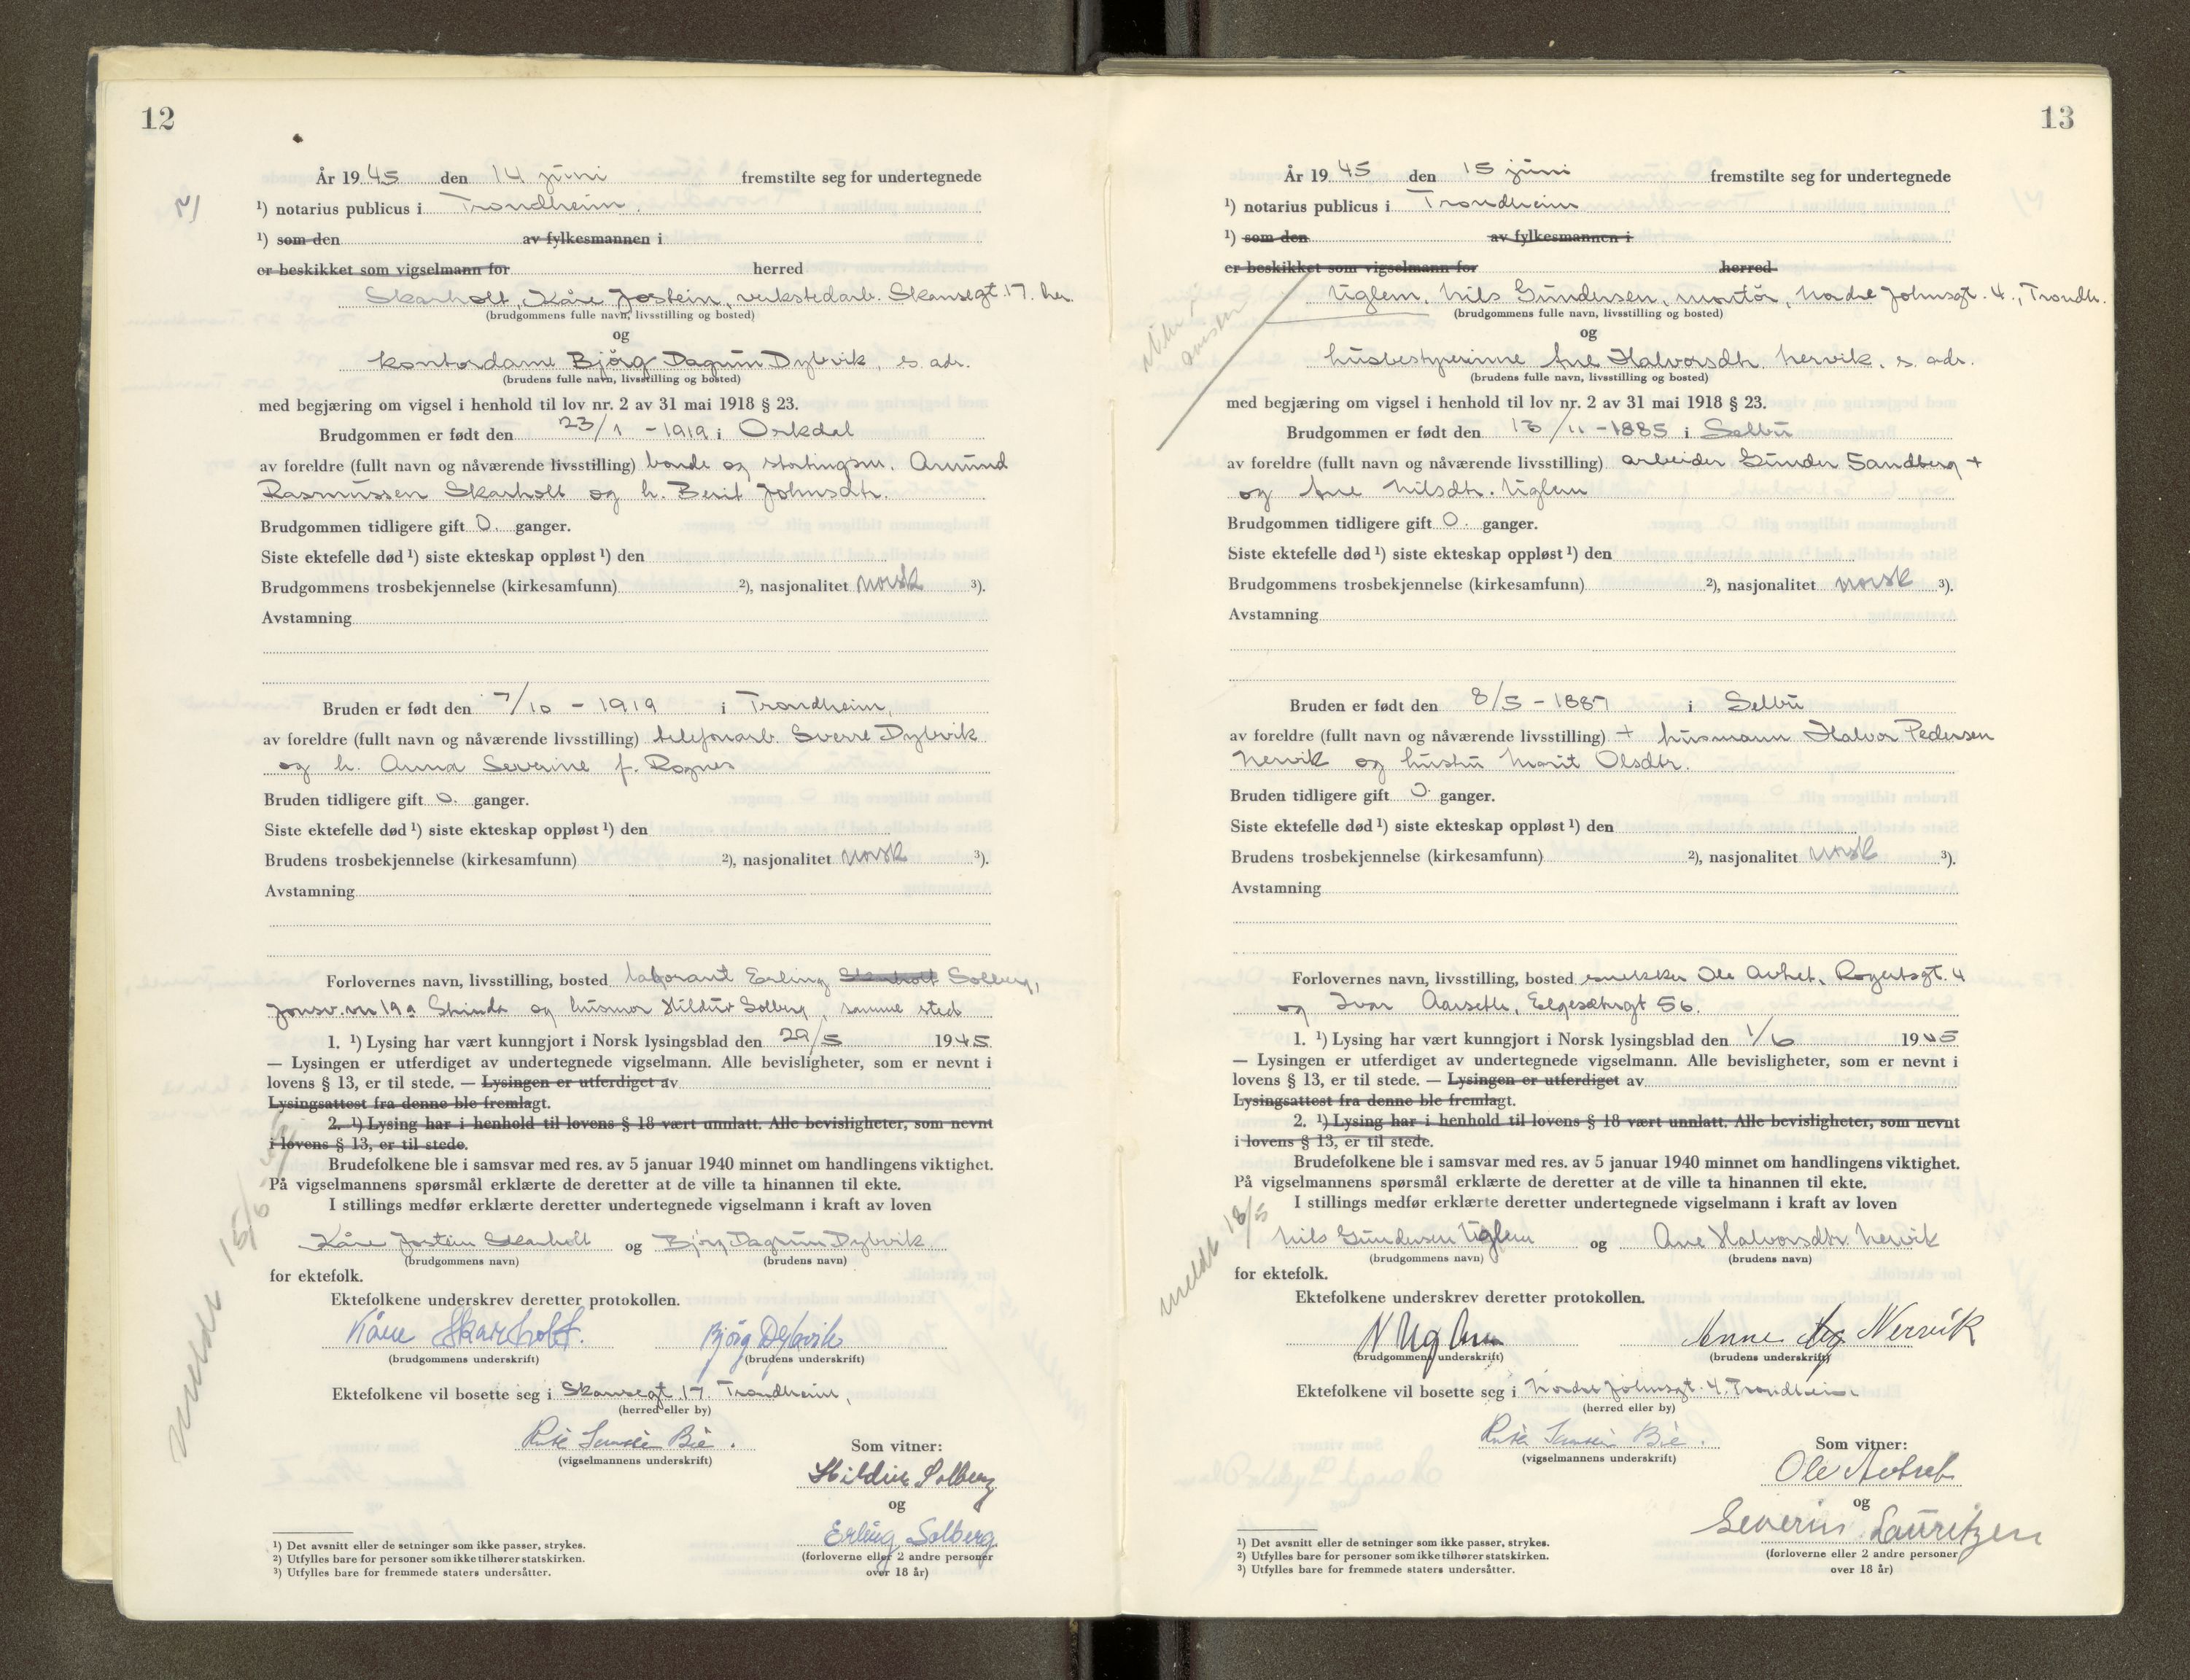 12
År 1945 den 14 juni fremstilte seg for undertegnede
¹) notarius publicus i Trondheim.
¹) som den av fylkesmannen i
er beskikket som vigselmann for herred
Skarholt, Kåre Jostein, verkstedarb. Skansegt. 17. her.
(brudgommens fulle navn, livsstilling og bosted)
og
kontordame Bjørg Dagrun Dybvik, s. adr.
(brudens fulle navn, livsstilling og bosted)
med begjæring om vigsel i henhold til lov nr. 2 av 31 mai 1918 § 23.
Brudgommen er født den 23/1 - 1919 i Orkdal
av foreldre (fullt navn og nåværende livsstilling) bonde og stortingsm. Amund
Rasmussen Skarholt og h. Berit Johnsdtr.
Brudgommen tidligere gift 0. ganger.
Siste ektefelle død ¹) siste ekteskap oppløst ¹) den
Brudgommens trosbekjennelse (kirkesamfunn) ²), nasjonalitet norsk ³).
Avstamning
Bruden er født den 7/10 - 1919 i Trondheim,
av foreldre (fullt navn og nåværende livsstilling) telefonarb. Sverre Dybvik
og h. Anna Severine f. Rognes
Bruden tidligere gift 0. ganger.
Siste ektefelle død ¹) siste ekteskap oppløst ¹) den
Brudens trosbekjennelse (kirkesamfunn) ²), nasjonalitet norsk ³).
Avstamning
Forlovernes navn, livsstilling, bosted laborant Erling Skarholt Solberg,
Jonsv.vn 19a Strinda og husmor Hildur Solberg, samme sted
1. ¹) Lysing har vært kunngjort i Norsk lysingsblad den 29/5 1945
— Lysingen er utferdiget av undertegnede vigselmann. Alle bevisligheter, som er nevnt i
lovens § 13, er til stede. — Lysingen er utferdiget av
Lysingsattest fra denne ble fremlagt.
2. ¹) Lysing har i henhold til lovens § 18 vært unnlatt. Alle bevisligheter, som nevnt
i lovens § 13, er til stede.
Brudefolkene ble i samsvar med res. av 5 januar 1940 minnet om handlingens viktighet.
På vigselmannens spørsmål erklærte de deretter at de ville ta hinannen til ekte.
I stillings medfør erklærte deretter undertegnede vigselmann i kraft av loven
Kåre Jostein Skarholt og Bjørg Dagrun Dybvik
(brudgommens navn) (brudens navn)
for ektefolk.
meldt 15/6
Ektefolkene underskrev deretter protokollen.
Kåre Skarholt. Bjørg Dybvik
(brudgommens underskrift) (brudens underskrift)
Ektefolkene vil bosette seg i Skansegt. 17. Trondheim,
(herred eller by)
(vigselmannens underskrift)
Som vitner:
Hildur Solberg
og
Erling Solberg
(forloverne eller 2 andre personer
over 18 år)
¹) Det avsnitt eller de setninger som ikke passer, strykes.
²) Utfylles bare for personer som ikke tilhører statskirken.
³) Utfylles bare for fremmede staters undersåtter.
13
År 1945 den 15 juni fremstilte seg for undertegnede
¹) notarius publicus i Trondheim
¹) som den av fylkesmannen i
er beskikket som vigselmann for herred
Uglem, Nils Gundersen, montør, Nordre Johnsgt. 4., Trondh.
(brudgommens fulle navn, livsstilling og bosted)
og
husbestyrerinne Ane Halvorsdtr. Nervik, s. adr.
(brudens fulle navn, livsstilling og bosted)
med begjæring om vigsel i henhold til lov nr. 2 av 31 mai 1918 § 23.
Brudgommen er født den 13/11 - 1885 i Selbu
av foreldre (fullt navn og nåværende livsstilling) arbeider Gunder Sandberg +
og Ane Nilsdtr. Uglem
Brudgommen tidligere gift 0. ganger.
Siste ektefelle død ¹) siste ekteskap oppløst ¹) den
Brudgommens trosbekjennelse (kirkesamfunn) ²), nasjonalitet norsk ³).
Avstamning
Bruden er født den 8/5 - 1887 i Selbu
av foreldre (fullt navn og nåværende livsstilling) + husmann Halvor Pedersen
Nervik og hustru Marit Olsdtr.
Bruden tidligere gift 0. ganger.
Siste ektefelle død ¹) siste ekteskap oppløst ¹) den
Brudens trosbekjennelse (kirkesamfunn) ²), nasjonalitet norsk ³).
Avstamning
Forlovernes navn, livsstilling, bosted snekker Ole Rogertsgt. 4
og Ivar Aarseth, Elgesætergt 56.
1. ¹) Lysing har vært kunngjort i Norsk lysingsblad den 1/6 1945
— Lysingen er utferdiget av undertegnede vigselmann. Alle bevisligheter, som er nevnt i
lovens § 13, er til stede. — Lysingen er utferdiget av
Lysingsattest fra denne ble fremlagt.
2. ¹) Lysing har i henhold til lovens § 18 vært unnlatt. Alle bevisligheter, som nevnt
i lovens § 13, er til stede.
Brudefolkene ble i samsvar med res. av 5 januar 1940 minnet om handlingens viktighet.
På vigselmannens spørsmål erklærte de deretter at de ville ta hinannen til ekte.
I stillings medfør erklærte deretter undertegnede vigselmann i kraft av loven
Nils Gundersen Uglem og Ane Halvorsdtr. Nervik
(brudgommens navn) (brudens navn)
for ektefolk.
meldt
Ektefolkene underskrev deretter protokollen.
N Uglem Anne Nervik
(brudgommens underskrift) (brudens underskrift)
Ektefolkene vil bosette seg i Nordre Johnsgt. 4. Trondheim.
(herred eller by)
(vigselmannens underskrift)
Som vitner:
Ole
og
Severin Lauritzen
(forloverne eller 2 andre personer
over 18 år)
¹) Det avsnitt eller de setninger som ikke passer, strykes.
²) Utfylles bare for personer som ikke tilhører statskirken.
³) Utfylles bare for fremmede staters undersåtter.